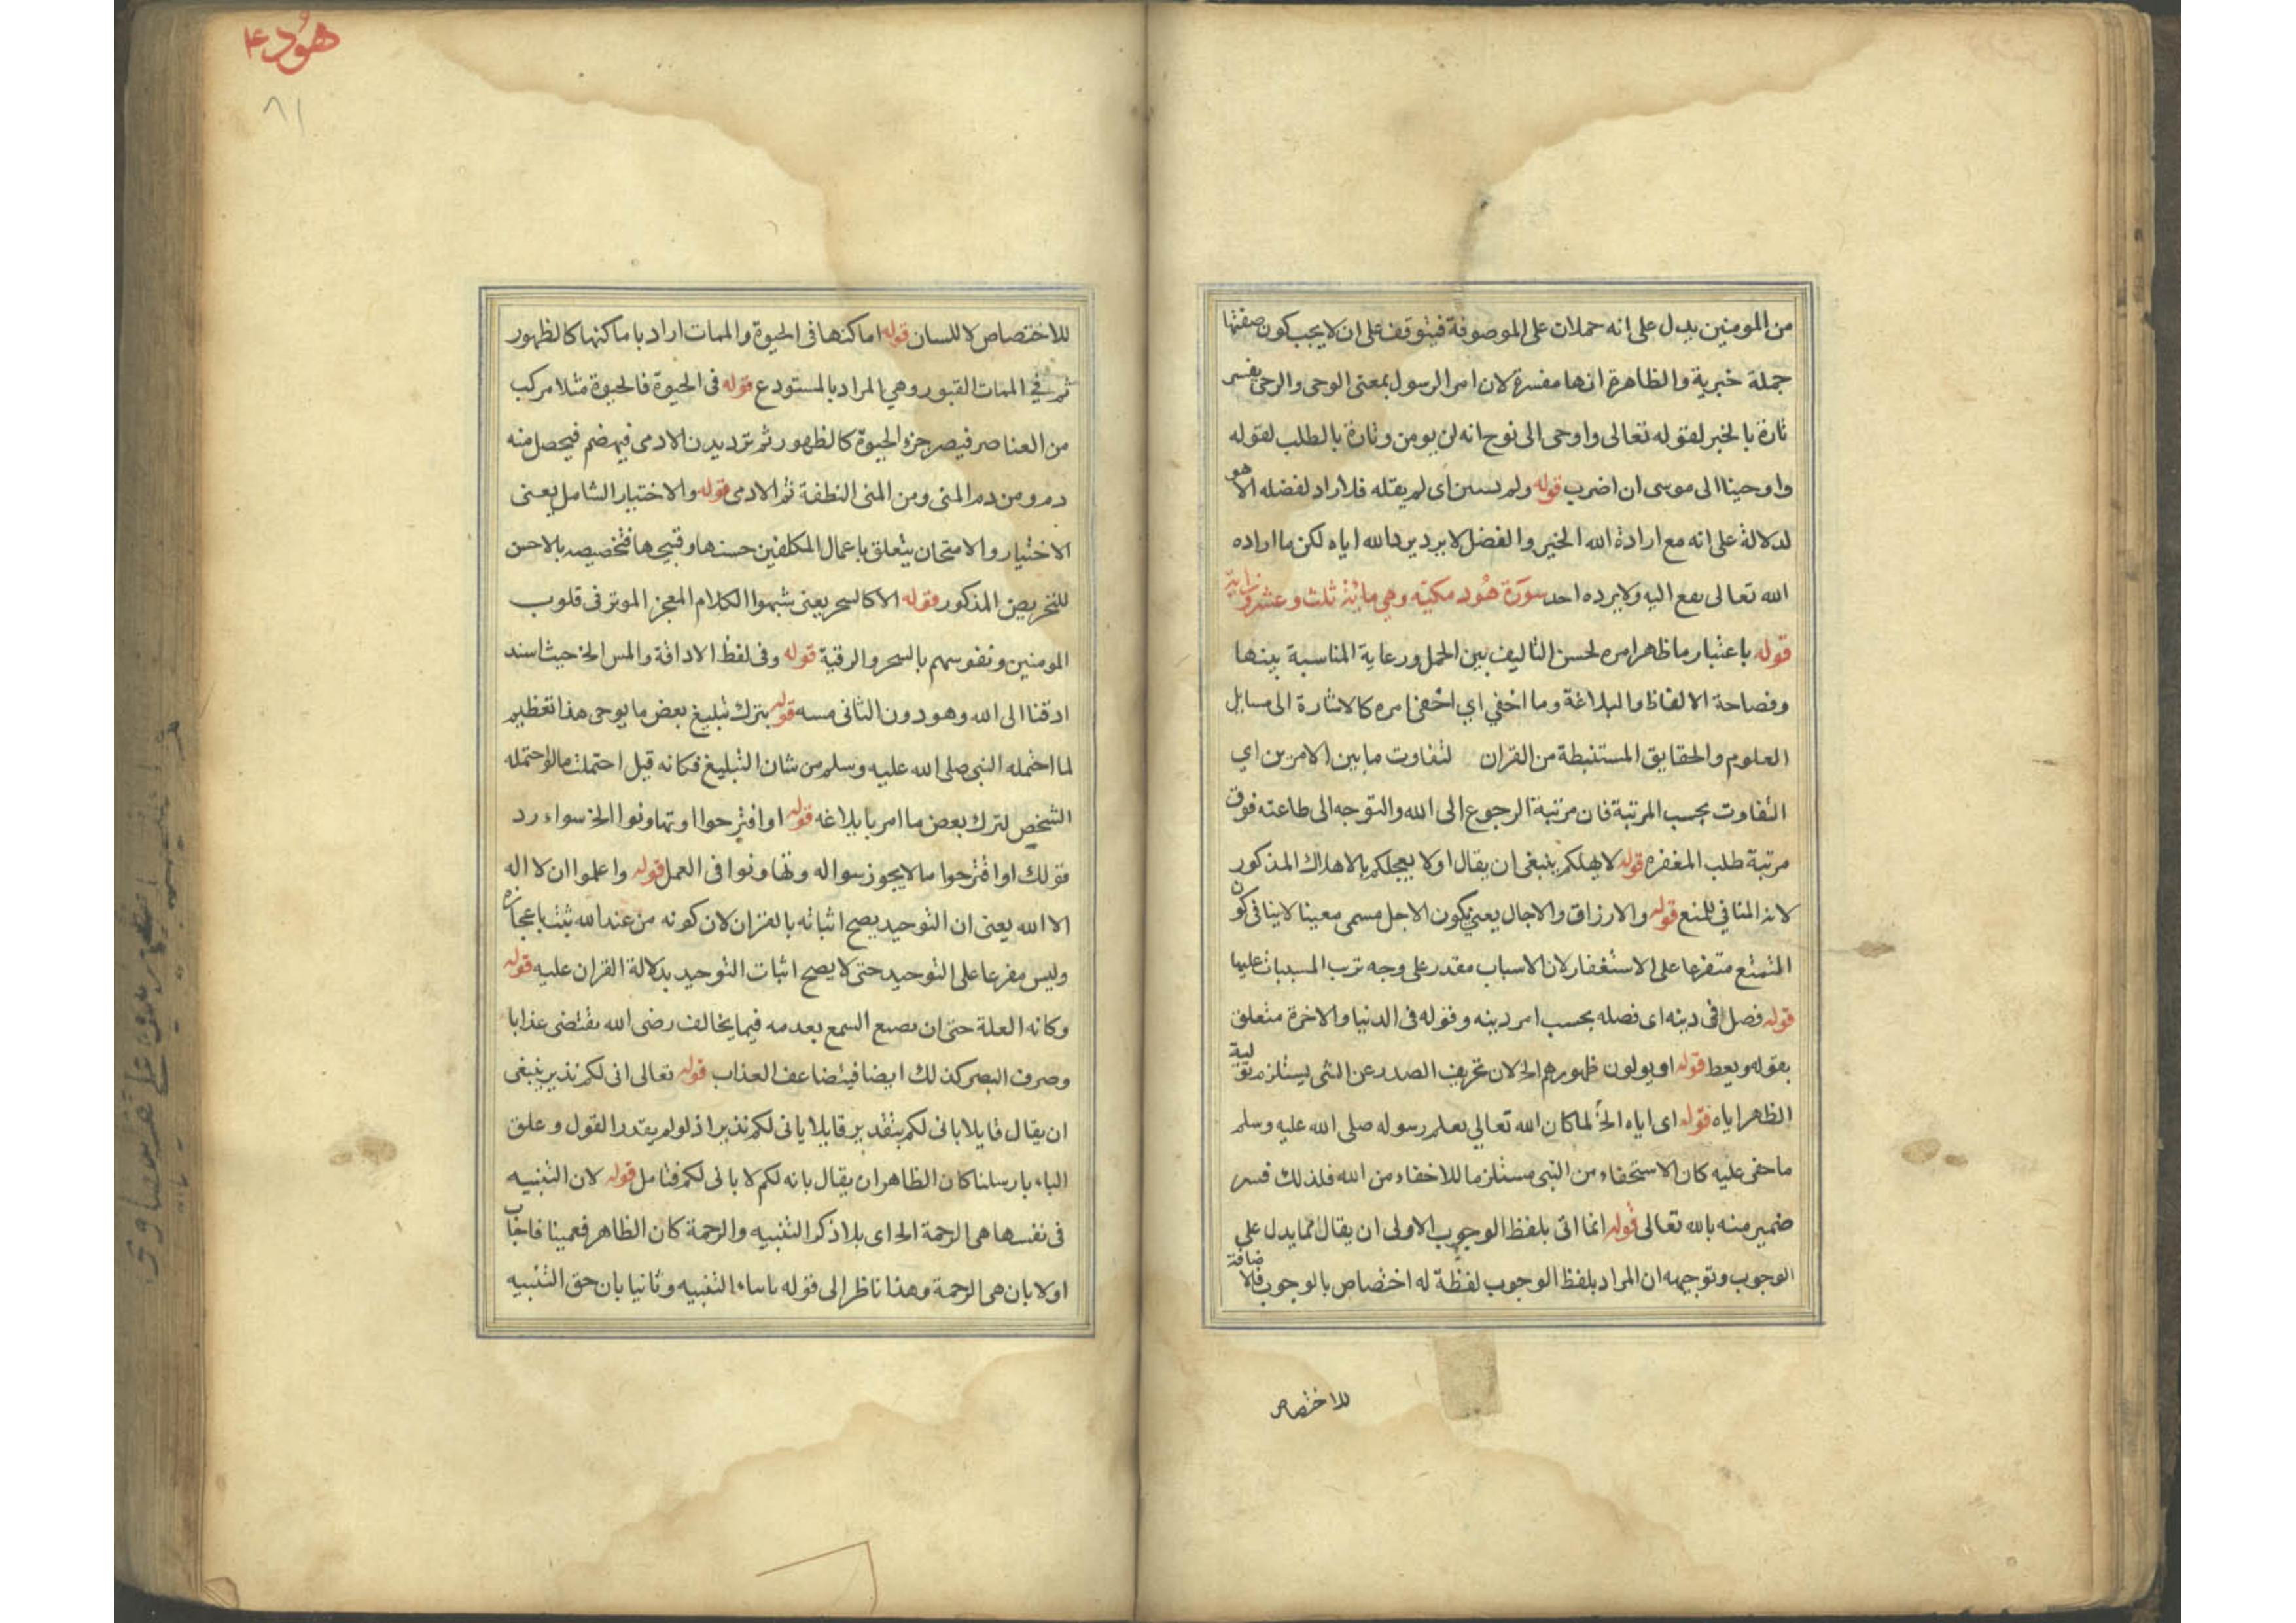 من المومنين يدل على انه حملات على الموصوفة فيتوقف على ان لا يجب كون صفتها
جملة خبرية والظاهرة انها مفسرة لان امر الرسول بمعنى الوحى والوحى يفسر
تارة بالخبر لقوله تعالى واوحى الى نوح انه لن يومن وتارة بالطلب لقوله
واوحينا الى موسى ان اضرب قوله ولم يستثن اى لم يقله فلا راد لفضله الا هو
لدلالة على انه مع ارادة الله الخير والفضل لا يرد يرد الله اياه لكن ما اراده
الله تعالى يقع اليه ولا يرده احد سورة هود مكية وهى مائة ثلث وعشرون اية
قوله باعتبار ما ظهر امره لحسن التاليف بين الجمل ورعاية المناسبة بينها
وفصاحة الالفاظ والبلاغة وما اخفي اي اخفى امره كالاشارة الى مسايل
العلوم والحقايق المستنبطة من القران لتفاوت ما بين الامرين اي
التفاوت بحسب المرتبة فان مرتبة الرجوع الى الله والتوجه الى طاعته فوق
مرتبة طلب المغفره قوله لا يهلكم ينبغى ان يقال اولا يعجلكم بالاهلاك المذكور
لانه المنافي للمنع قوله والارزاق والاجال يعني كون الاجل مسمى معينا لا ينافى كون
التمتع متفرعا على الاستغفار لان الاسباب مقدر على وجه ترتب المسببات عليها
قوله فضل فى دينه اى فضله بحسب امر دينه وقوله فى الدنيا والاخرة متعلق
بقوله ويعط قوله او يولون ظهورهم الخ لان تحريف الصدر عن الشى يستلزم تولية
الظهر اياه قوله اى اياه الخ لما كان الله تعالي يعلم رسوله صلى الله عليه وسلم
ما خفى عليه كان الاستخفاء من النبى مستلزما للاخفاء من الله فلذلك فسر
ضمير منه بالله تعالى قوله انما اتى بلفظ الوجوب الاولى ان يقال بما يدل على
الوجوب وتوجيهه ان المراد بلفظ الوجوب لفظة له اختصاص بالوجوب فالاضافة
للاختصاص
هود ع
٨١
للاختصاص لا للسان قوله اماكنها فى الحيوة والممات اراد باماكنها كالظهور
ثم في الممات القبور وهي المراد بالمستودع قوله فى الحيوة فالحيوة مثلا مركب
من العناصر فيصر جزء الحيوة كالظهور ثم تزد بدن الادمى فيهضم فيحصل منه
دم ومن دم المنى ومن المنى النطفة ثم الادمى قوله والاختبار الشامل يعنى
الاختبار والامتحان يتعلق باعمال المكلفين حسنها وقبيحها فتخصيصه بالاحسن
للتحريص المذكور قوله الا كالسحر يعنى شبهوا الكلام المعجز الموثر فى قلوب
المومنين ونفوسهم بالسحر والرقية قوله وفى لفظ الاذاقة والمس الخ حيث اسند
اذقنا الى الله وهو دون الثانى مسه قوله بترك تبليغ بعض ما يوحى هذا تعظيم
لما احتمله النبى صلى الله عليه وسلم من شان التبليغ فكانه قيل احتملت ما لو احتمله
الشخص لترك بعض ما امر بابلاغه قوله او اقترحوا او تهاونوا الخ سواء رد
قولك او اقترحوا ما لا يجوز سواله وتهاونوا فى العمل قوله واعلموا ان لا اله
الا الله يعنى ان التوحيد يصح اثباته بالقران لان كونه من عند الله ثبت باعجازه
وليس مفرعا على التوحيد حتى لا يصح اثبات التوحيد بدلالة القران عليه قوله
وكانه العلة حتى ان يصيع السمع بعدمه فيما يخالف رضى الله يقتضى عذابا
وصرف البصر كذلك ايضا فيتضاعف العذاب قوله تعالى انى لكم نذير ينبغى
ان يقال قايلا بانى لكم بتقدير قايلا يانى لكم نذير اذ لو لم يقدر القول وعلق
الباء بارسلنا كان الظاهر ان يقال بانه لكم لا بانى لكم فتامل قوله لان التنبيه
فى نفسها هى الرحمة الخ اى بلا ذكر التنبيه والرحمة كان الظاهر فعمينا فاجاب
اولا بان هى الرحمة وهذا ناظر الى قوله باساء التنبيه وثانيا بان حق التنبيه